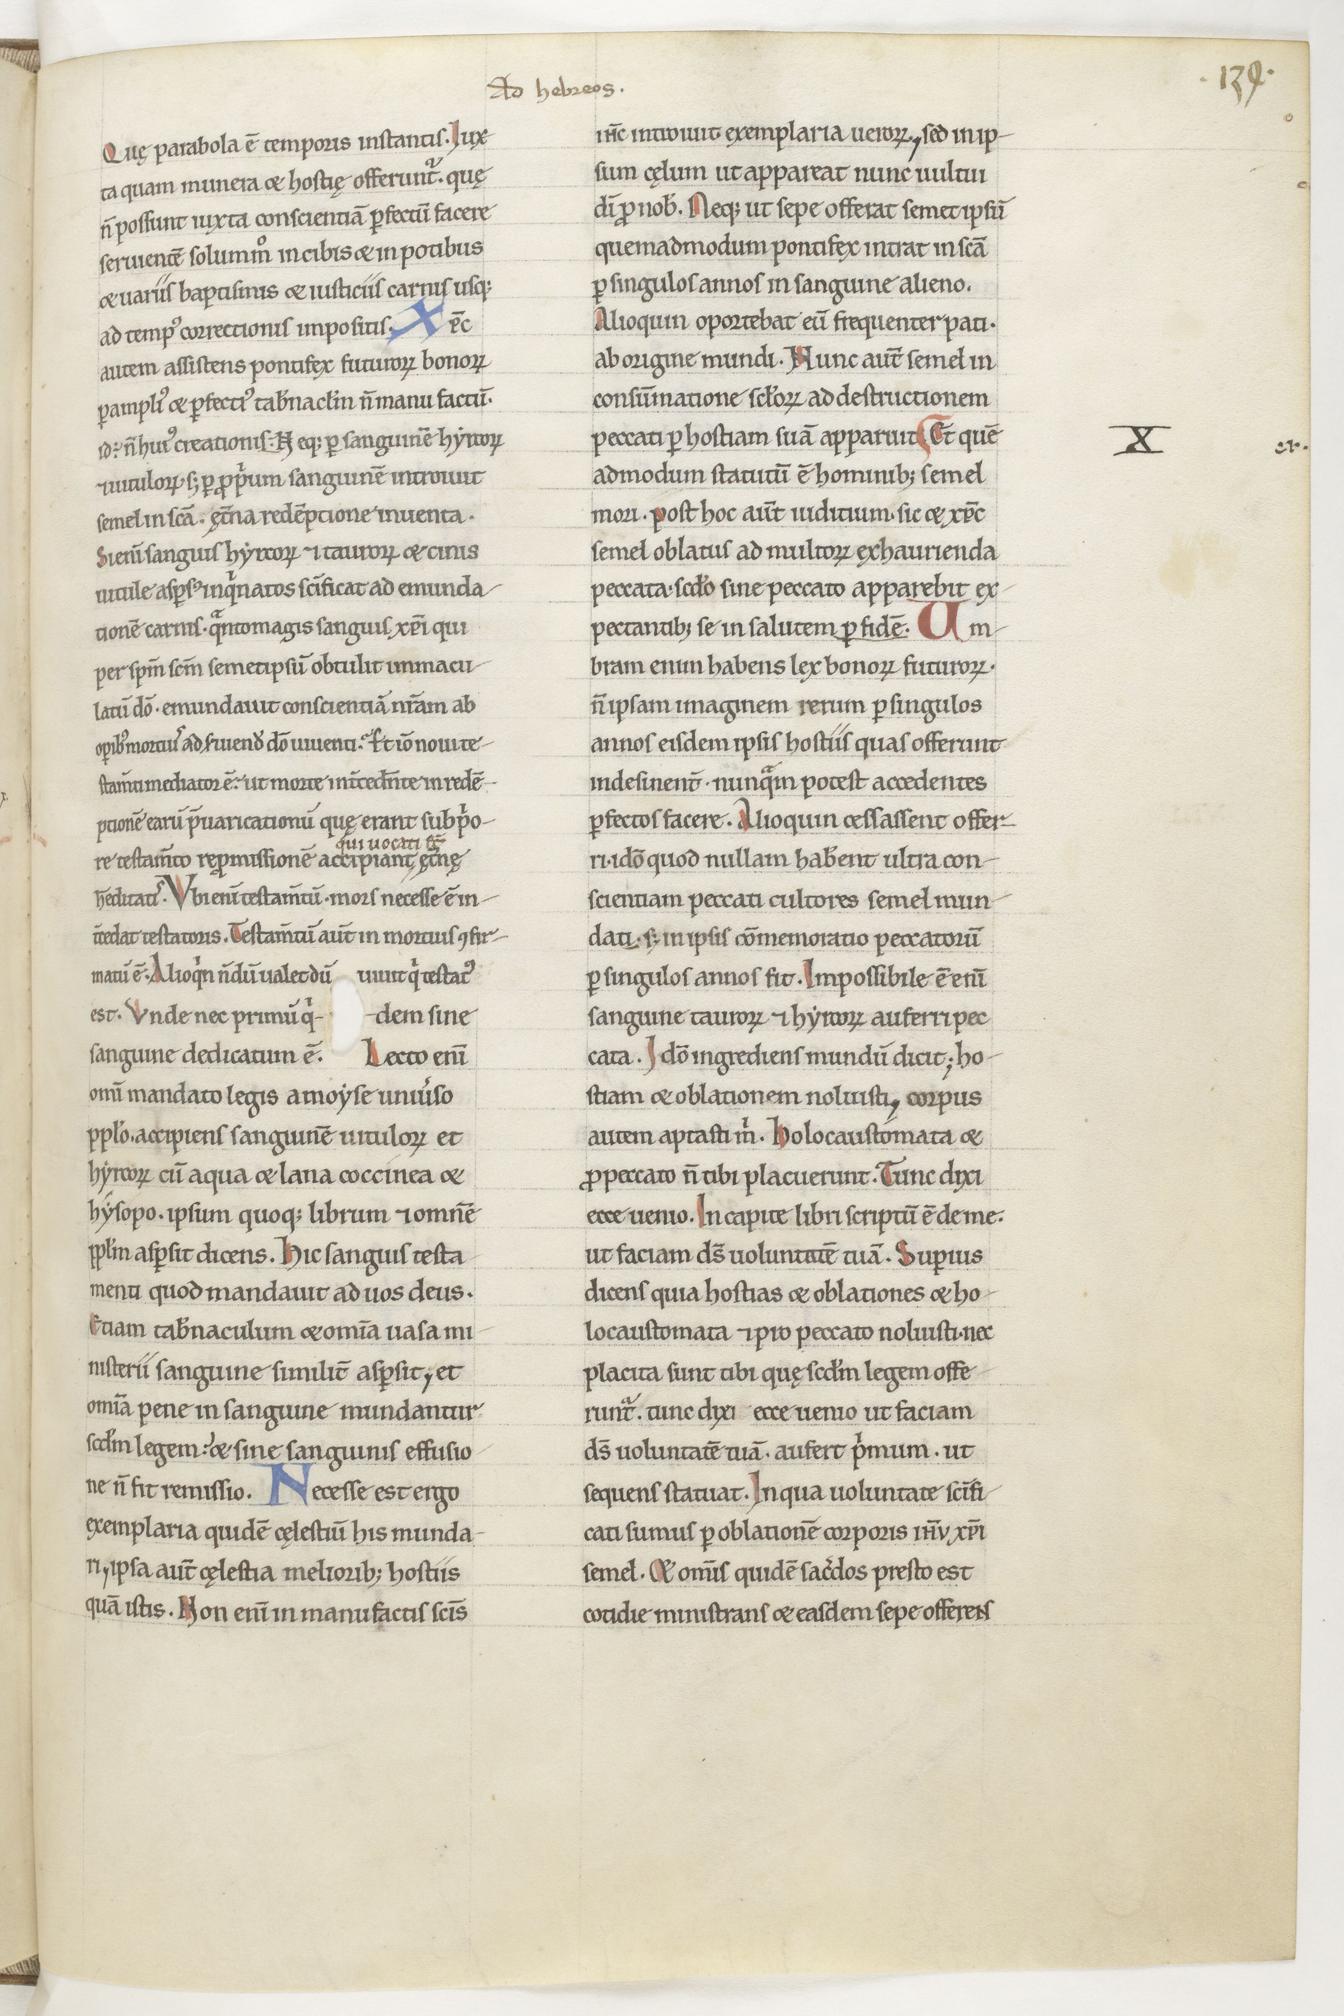 Ad hebreos.
·139·
Quę parabola ē temporis instantis. Iux-
ta quam munera & hostię offerunt̄. quę
n̄ possunt iuxta conscientiā ꝑfectū facere
seruientē solummͦ in cibis & in potibus
& uariis baptismis & iusticiis carnis usq;
ad tempꝰ correctionis impositis. Xp̄c
autem assistens pontifex futuroꝝ bonoꝝ
ꝑ ampliꝰ & ꝑfectiꝰ tab̄nacl̄m n̄ manu factū.
id: n̄ huiꝰ creationis. Neq; ꝑ sanguinē hẏrcoꝝ
⁊ uituloꝝ s; ꝑ ꝓprium sanguinē introiuit
semel in scā. ęt̄na redēptione inuenta.
Si enī sanguis hẏrcoꝝ ⁊ tauroꝝ & cinis
uitule asꝑsꝰ inqͥnatos scīficat ad emunda-
tionē carnis. qͣntomagis sanguis xp̄i qui
per sp̄m sc̄m semetipsū obtulit immacu-
latū dō. emundauit conscientiā nr̄am ab
oꝑibꝰ mortuis ad seruiend̄ dō uiuenti. Et iō noui te-
stam̄ti mediator ē: ut morte int̄cedn̄te in redē-
ptionē earū p̄uaricationū quę erant sub pͥo-
qui uocati st̄
re testam̄to reꝓmissionē accipiant ęt̄nę
h̄editatis. Vbi enī testam̄tū. mors necesse ē in-
t̄cedat testatoris. Testam̄tū aut̄ in mortuis ꝯfir-
matū ē. Alioqͥn n̄dū ualet dū uiuit qͥ testatꝰ
est. Vnde nec primū qͥ- -dem sine
sanguine dedicatum ē. Lecto enī
omī mandato legis a moẏse uniuͥso
ppl̄o. accipiens sanguinē uituloꝝ et
hẏrcoꝝ cū aqua & lana coccinea &
hẏsopo. ipsum quoq; librum ⁊ omnē
ppl̄m asꝑsit dicens. Hic sanguis testa
menti quod mandauit ad uos deus.
Etiam tab̄naculum & om̄ia uasa mi-
nisterii sanguine similit̄ asꝑsit, et
om̄ia pene in sanguine mundantur
scd̄m legem: & sine sanguinis effusio-
ne n̄ fit remissio. Necesse est ergo
exemplaria quidē cęlestiū his munda-
ri, ipsa aut̄ cęlestia meliorib; hostiis
quā istis. Non enī in manufactis scīs
ih̄c introiuit exemplaria ueroꝝ, sed in ip-
sum cęlum ut appareat nunc uultui
dī ꝓ nob̄. Neq; ut sepe offerat semet ipsū
quemadmodum pontifex intrat in scā
ꝑ singulos annos in sanguine alieno.
Alioquin oportebat eū frequenter pati.
ab origine mundi. Nunc aut̄ semel in
consūmatione scl̄oꝝ ad destructionem
peccati ꝑ hostiam suā apparuit. Et quē
X
er.
admodum statutū ē hominib; semel
mori. post hoc aut̄ iuditium. sic & xp̄c
semel oblatus ad multoꝝ exhaurienda
peccata. scd̄o sine peccato apparebit ex-
pectantib; se in salutem ꝑ fidē. Um-
bram enim habens lex bonoꝝ futuroꝝ.
n̄ ipsam imaginem rerum ꝑ singulos
annos eisdem ipsis hostiis quas offerunt
indesinent̄. nunqͣm potest accedentes
ꝑfectos facere. Alioquin cessassent offer-
ri. idō quod nullam hab̄ent ultra con-
scientiam peccati cultores semel mun-
dati. s; in ipsis cōmemoratio peccatorū
ꝑ singulos annos fit. Impossibile ē enī
sanguine tauroꝝ ⁊ hẏrcoꝝ auferri pec
cata. Idō ingrediens mundū dicit; ho-
stiam & oblationem noluisti, corpus
autem aptasti mͥ. Holocaustomata &
ꝓ peccato n̄ tibi placuerunt. Tunc dixi
ecce uenio. In capite libri scriptū ē de me.
ut faciam ds̄ uoluntatē tuā. Superius
dicens quia hostias & oblationes & ho-
locaustomata ⁊ pro peccato noluisti. nec
placita sunt tibi quę scd̄m legem offe-
runt̄. tunc dixi ecce uenio ut faciam
ds̄ uoluntatē tuā. aufert pͥmum. ut
sequens statuat. In qua uoluntate scīfi-
cati sumus ꝑ oblationē corporis ih̄v xp̄i
semel. & om̄is quidē sac̄dos presto est
cotidie ministrans & easdem sepe offerens